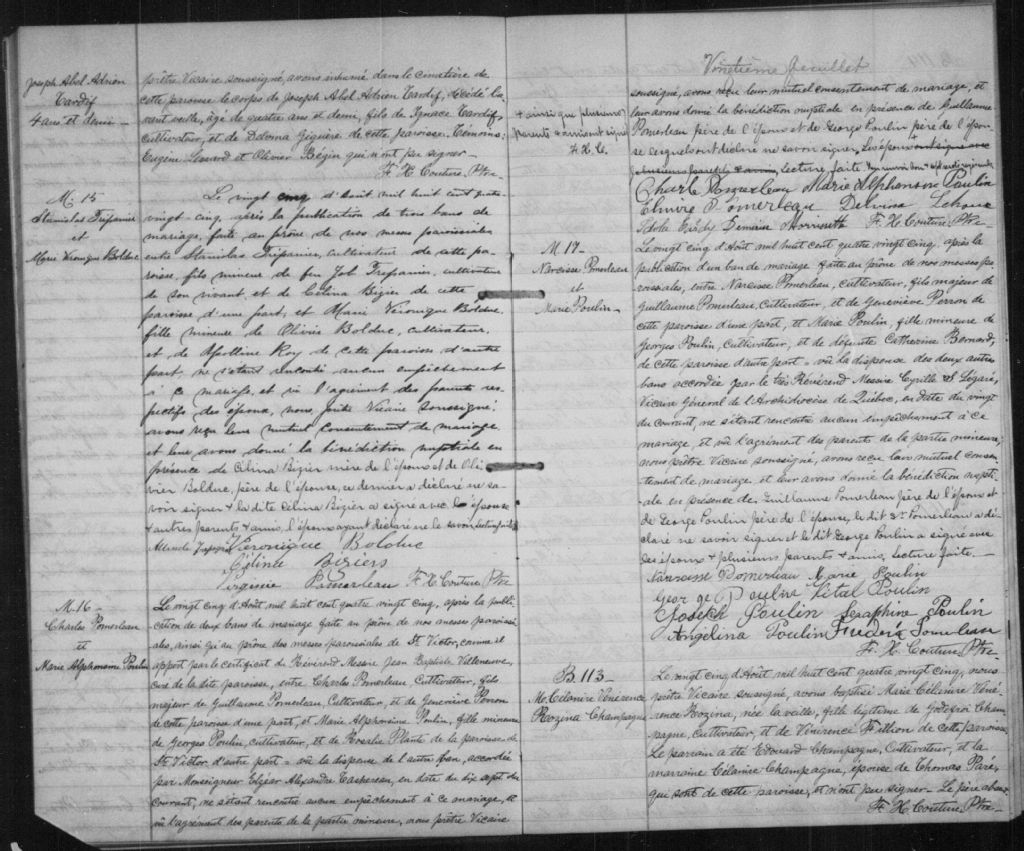 Joseph Abel Adrien
Tardif
4 ans et demi —
prêtre Vicaire soussigné avons inhumé dans le cimetière de
cette paroisse le corps de Joseph Abel Adrien Tardif, décédé l'a-
vant veille, âgé de quatre ans et demi, fils de Ignace Tardif,
cultivateur, et de Delvina Giguère de cette paroisse. Témoins:
Eugène Lessard et Olivier Bégin qui n'ont pu signer —
F. X. Couture, Ptre —
M. 15
Stanislas Trépanier
et
Marie Véronique Bolduc
Le vingt cinq d'août mil huit cent quatre
vingt-cinq, après la publication de trois bans de
mariage, faite au prône de nos messes paroissiales
entre Stanislas Trépanier, cultivateur de cette pa-
roisse, fils mineur de feu Job Trépanier, cultivateur
de son vivant, et de Célina Bizier de cette
paroisse d'une part, et Marie Véronique Bolduc,
fille mineure de Olivier Bolduc, cultivateur,
et de Roy de cette paroisse d'autre
part, ne s'étant rencontré aucun empêchement
à ce mariage, et vu l'agrément des parents res-
pectifs des époux, nous, prêtre Vicaire soussigné,
avons reçu leur mutuel consentement de mariage,
et leur avons donné la bénédiction nuptiale en
présence de Célina Bizier mère de l'époux et de Oli-
vier Bolduc, père de l'épouse, ce dernier a déclaré ne sa-
voir signer & la dite Célina Bizier a signé avec l'épouse
& autres parents & amis, l'époux ayant déclaré ne le savoir. Lecture faite
Véronique Bolduc
Célina Biziers
Virginie Pomerleau F. X. Couture, Ptre
M. 16 —
Charles Pomerleau
et
Marie Alphonsine Poulin
Le vingt cinq d'Août mil huit cent quatre vingt cinq, après la publi-
cation de deux bans de mariage faite au prône de nos messes paroissi-
ales, ainsi qu'au prône des messes paroissiales de St. Victor, comme il
appert par le certificat du Révérend Messire Jean Baptiste Villeneuve,
curé de la dite paroisse, entre Charles Pomerleau Cultivateur, fils
majeur de Guillaume Pomerleau, Cultivateur, et de Geneviève Perron
de cette paroisse d'une part, et Marie Alphonsine Poulin, fille mineure
de Georges Poulin, cultivateur, et de Rosalie Plante de la paroisse de
St. Victor d'autre part = vû la dispense de l'autre ban, accordée
par Monseigneur Elzéar Alexandre Taschereau, en date du dix sept du
courant, ne s'étant rencontré aucun empêchement à ce mariage, &
vû l'agrément des parents de la partie mineure, nous prêtre Vicaire
Vingtième feuillet
+ ainsi que plusieurs
parents & amis ont signé
F. X. C.
soussigné, avons reçu leur mutuel consentement de mariage, et
leur avons donné la bénédiction nuptiale en présence de Guillaume
Pomerleau père de l'époux et de Georges Poulin père de l'épou-
se lesquels ont déclaré ne savoir signer, les époux + ont signé avec
plusieurs parents & amis, Lecture faite
Charle Pomerleau Marie Alphonsine Poulin
Elmire Pomerleau Delvina
F. X. Couture, Ptre —
M. 17 —
Narcisse Pomerleau
et
Marie Poulin —
Le vingt cinq d'Août mil huit cent quatre vingt cinq, après la
publication d'un ban de mariage faite au prône de nos messes pa-
roissiales, entre Narcisse Pomerleau, cultivateur, fils majeur de
Guillaume Pomerleau, Cultivateur, et de Geneviève Perron de
cette paroisse d'une part, et Marie Poulin, fille mineure de
Georges Poulin, Cultivateur, et de défunte Catherine Bernard,
de cette paroisse d'autre part = vû la dispense des deux autres
bans accordée par le très Révérend Messire Cyrille E Légaré,
Vicaire Général de l'Archidiocèse de Québec, en date du vingt
du courant, ne s'étant rencontré aucun empêchement à ce
mariage, et vû l'agrément des parents de la partie mineure,
nous prêtre Vicaire soussigné, avons reçu leur mutuel consen-
tement de mariage et leur avons donné la bénédiction nupti-
ale en présence de Guillaume Pomerleau père de l'époux et
de George Poulin père de l'épouse, le dit Sr. Pomerleau a dé-
claré ne savoir signer et le dit George Poulin a signé avec
les époux & plusieurs parents & amis, Lecture faite. —
Narcisse Pomerleau Marie Poulin
George Poulin Vital Poulin
Joseph Poulin Séraphine Poulin
Angélina Poulin Pomerleau
F. X. Couture, Ptre —
B. 113 —
M. Célanire Vénérence
Rozina Champagne
Le vingt cinq d'Août mil huit cent quatre vingt cinq, nous
prêtre Vicaire soussigné, avons baptisé Marie Célanire Véné-
rence Rozina, née la veille, fille légitime de Godefroi Cham-
pagne, Cultivateur, et de Vénérence Fillion de cette paroisse.
Le parrain a été Edouard Champagne, Cultivateur, et la
marraine Célanire Champagne, épouse de Thomas Paré,
qui sont de cette paroisse, et n'ont pu signer — Le père absent
F. X. Couture, Ptre —